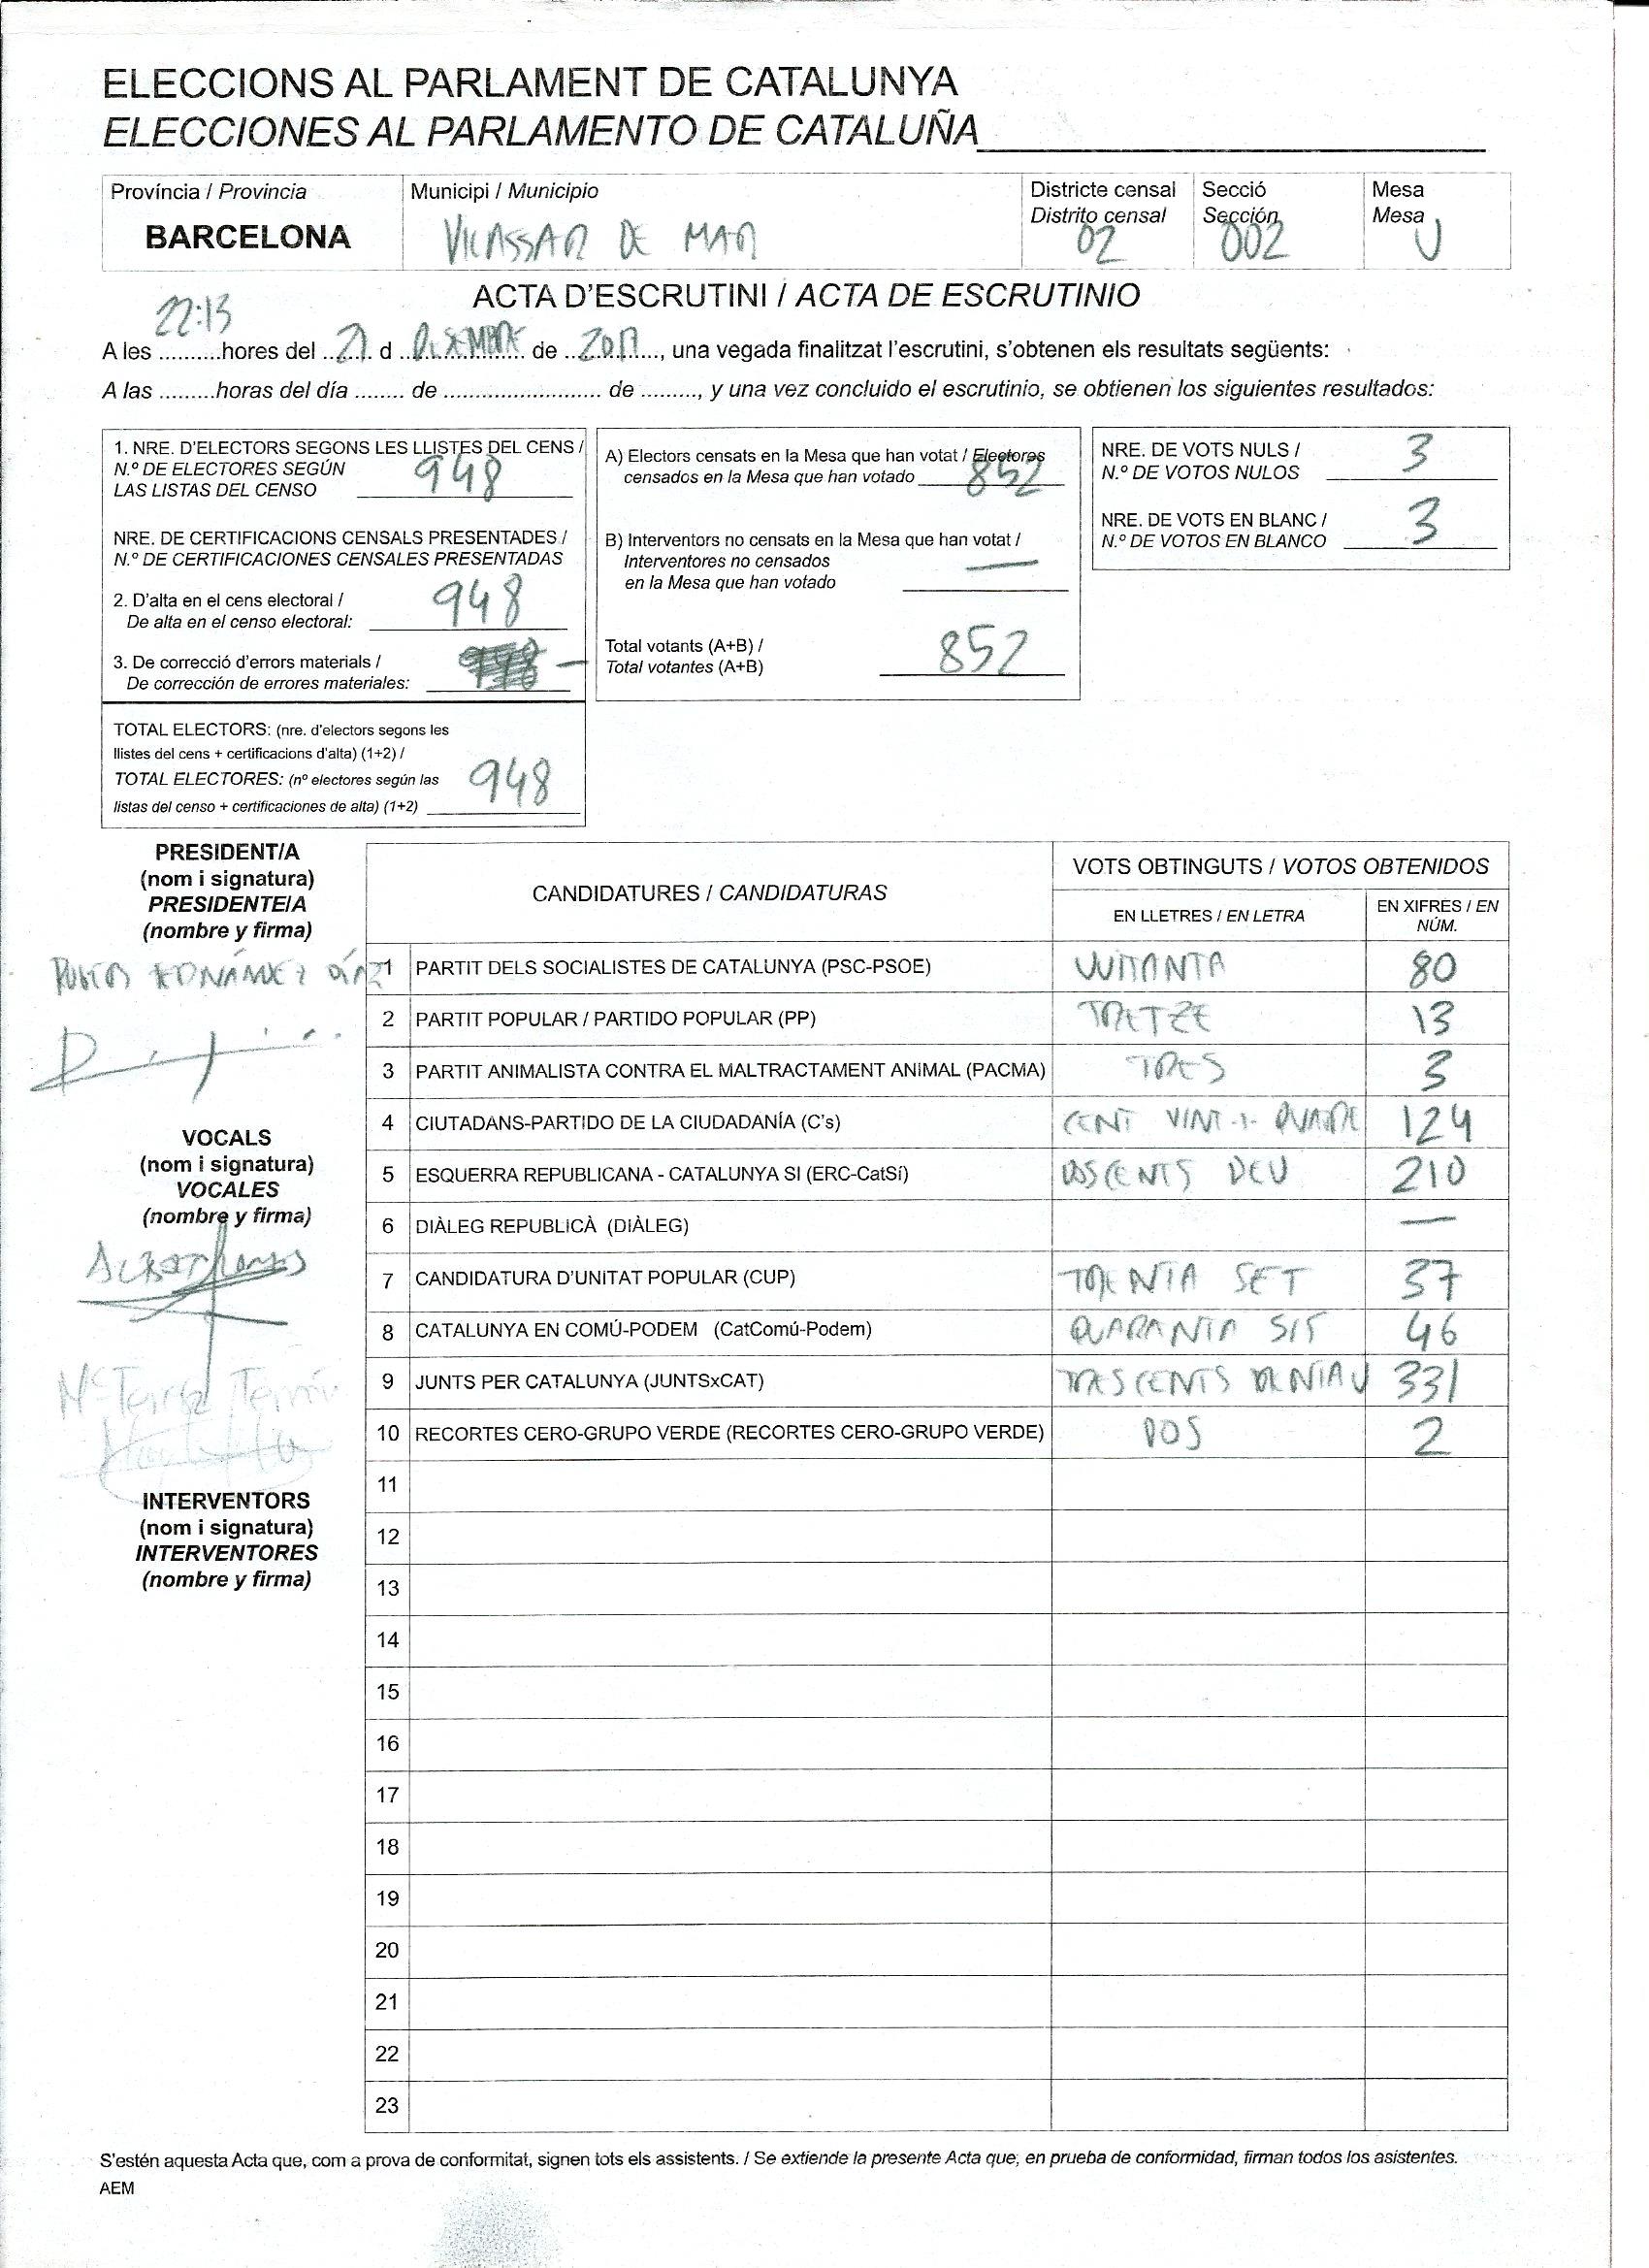 ELECCIONS AL PARLAMENT DE CATALUNYA
ELECCIONES AL PARLAMENTO DE CATALUÑA
Província / Provincia
BARCELONA
Municipi / Municipio
VILASSAR DE MAR
Districte censal
Distrito censal
02
Secció
Sección
002
Mesa
Mesa
U
ACTA D'ESCRUTINI / ACTA DE ESCRUTINIO
22:13
A les ..........hores del ..21.. d ..DESEMBRE.. de ..2017.., una vegada finalitzat l'escrutini, s'obtenen els resultats següents:
A las .........horas del día ........ de .......................... de ........., y una vez concluido el escrutinio, se obtienen los siguientes resultados:
1. NRE. D'ELECTORS SEGONS LES LLISTES DEL CENS /
N.º DE ELECTORES SEGÚN
LAS LISTAS DEL CENSO 948
NRE. DE CERTIFICACIONS CENSALS PRESENTADES /
N.º DE CERTIFICACIONES CENSALES PRESENTADAS
2. D'alta en el cens electoral /
De alta en el censo electoral: 948
3. De correcció d'errors materials /
De corrección de errores materiales: —
TOTAL ELECTORS: (nre. d'electors segons les
llistes del cens + certificacions d'alta) (1+2) /
TOTAL ELECTORES: (nº electores según las
listas del censo + certificaciones de alta) (1+2) 948
A) Electors censats en la Mesa que han votat / Electores
censados en la Mesa que han votado 852
B) Interventors no censats en la Mesa que han votat /
Interventores no censados
en la Mesa que han votado —
Total votants (A+B) /
Total votantes (A+B) 852
NRE. DE VOTS NULS /
N.º DE VOTOS NULOS 3
NRE. DE VOTS EN BLANC /
N.º DE VOTOS EN BLANCO 3
PRESIDENT/A
(nom i signatura)
PRESIDENTE/A
(nombre y firma)
DÍAZ
VOCALS
(nom i signatura)
VOCALES
(nombre y firma)
ALBERT
INTERVENTORS
(nom i signatura)
INTERVENTORES
(nombre y firma)
CANDIDATURES / CANDIDATURAS
VOTS OBTINGUTS / VOTOS OBTENIDOS
EN LLETRES / EN LETRA
EN XIFRES / EN
NÚM.
1 PARTIT DELS SOCIALISTES DE CATALUNYA (PSC-PSOE) VUITANTA 80
2 PARTIT POPULAR / PARTIDO POPULAR (PP) TRETZE 13
3 PARTIT ANIMALISTA CONTRA EL MALTRACTAMENT ANIMAL (PACMA) TRES 3
4 CIUTADANS-PARTIDO DE LA CIUDADANÍA (C's) CENT VINT-I-QUATRE 124
5 ESQUERRA REPUBLICANA - CATALUNYA SI (ERC-CatSí) DOSCENTS DEU 210
6 DIÀLEG REPUBLICÀ (DIÀLEG) —
7 CANDIDATURA D'UNITAT POPULAR (CUP) TRENTA SET 37
8 CATALUNYA EN COMÚ-PODEM (CatComú-Podem) QUARANTA SIS 46
9 JUNTS PER CATALUNYA (JUNTSxCAT) TRESCENTS TRENTA U 331
10 RECORTES CERO-GRUPO VERDE (RECORTES CERO-GRUPO VERDE) DOS 2
11
12
13
14
15
16
17
18
19
20
21
22
23
S'estén aquesta Acta que, com a prova de conformitat, signen tots els assistents. / Se extiende la presente Acta que, en prueba de conformidad, firman todos los asistentes.
AEM